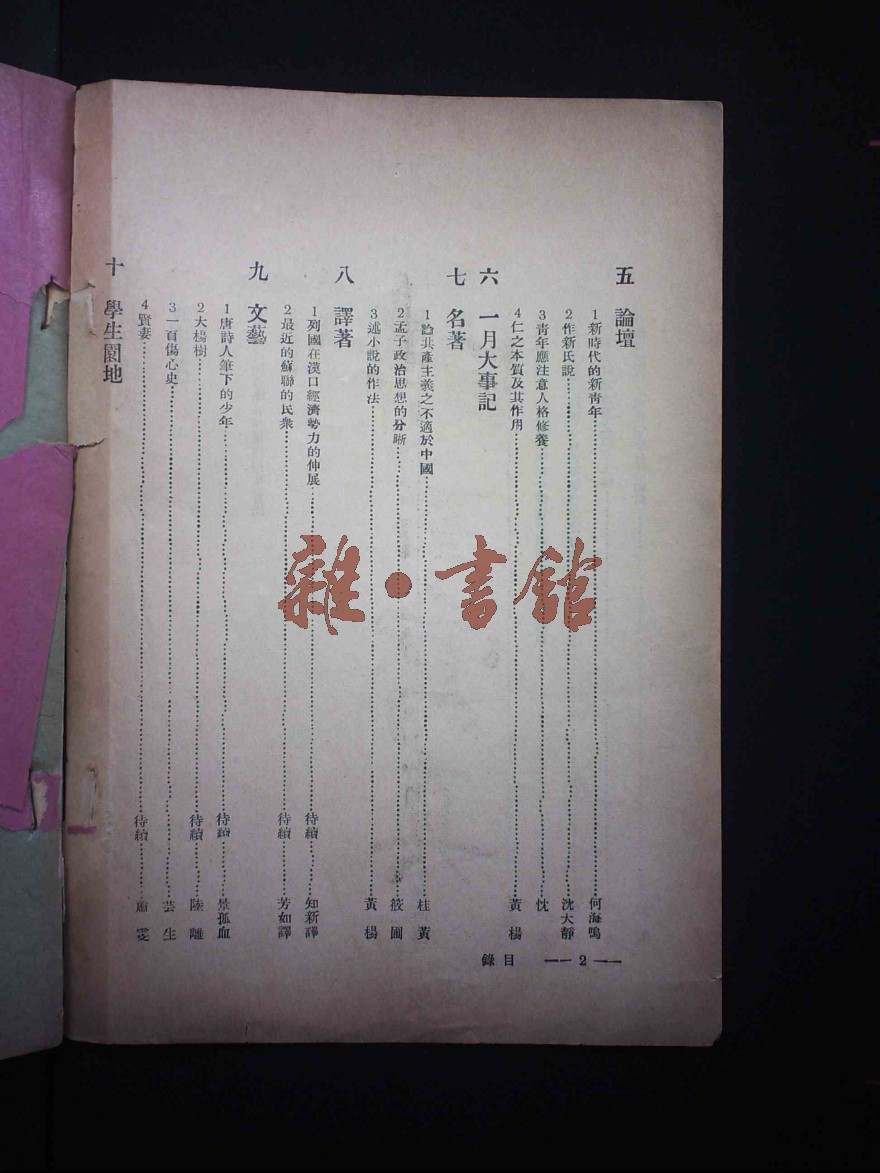 五 論壇
1新時代的新青年……何海鳴
2作新民說……沈大靜
3靑年應注意人格修養……忱
4仁之本質及其作用……黃楊
六 一月大事記
七 名著
1論共產主義之不適於中國……桂黃
2孟子政治思想的分晰……筱圃
3述小說的作法……黃楊
八 譯著
1列國在漢口經濟勢力的伸展……待續……知新譯
2最近的蘇聯的民衆……待續……芳如譯
九 文藝
1唐詩人筆下的少年……待續……景孤血
2大楊樹……待續……陸離
3一百傷心史……芸生
4賢妻……待續……雯
十 學生園地
錄目 —2—
雜·書館